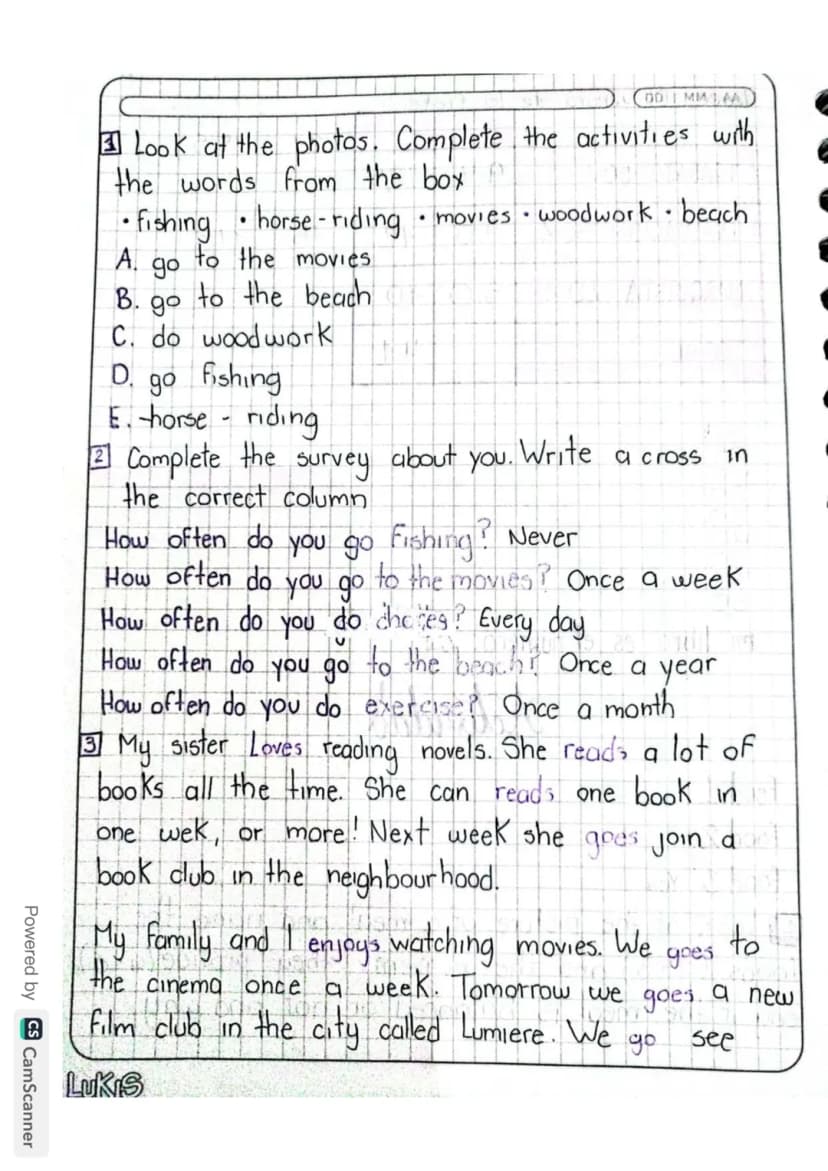 DD | MM | AA
1 Look at the photos. Complete the activities with
the words from the box
• fishing • horse-riding • movies • woodwork • beach
A. go to the movies
B. go to the beach
C. do woodwork
D. go fishing
E. horse - riding
2 Complete the survey about you. Write a cross in
the correct column
How often do you go fishing? Never
How often do you go to the movies? Once a week
How often do you do chores? Every day
How often do you go to the beach? Once a year
How often do you do exercise? Once a month
3 My sister Loves reading novels. She reads a lot of
books all the time. She can reads one book in
one wek, or more! Next week she goes join a
book club in the neighbourhood.
My family and I enjoys watching movies. We goes to
the cinema once a week. Tomorrow we goes a new
film club in the city called Lumiere. We go see
LUKAS
Powered by CS CamScanner